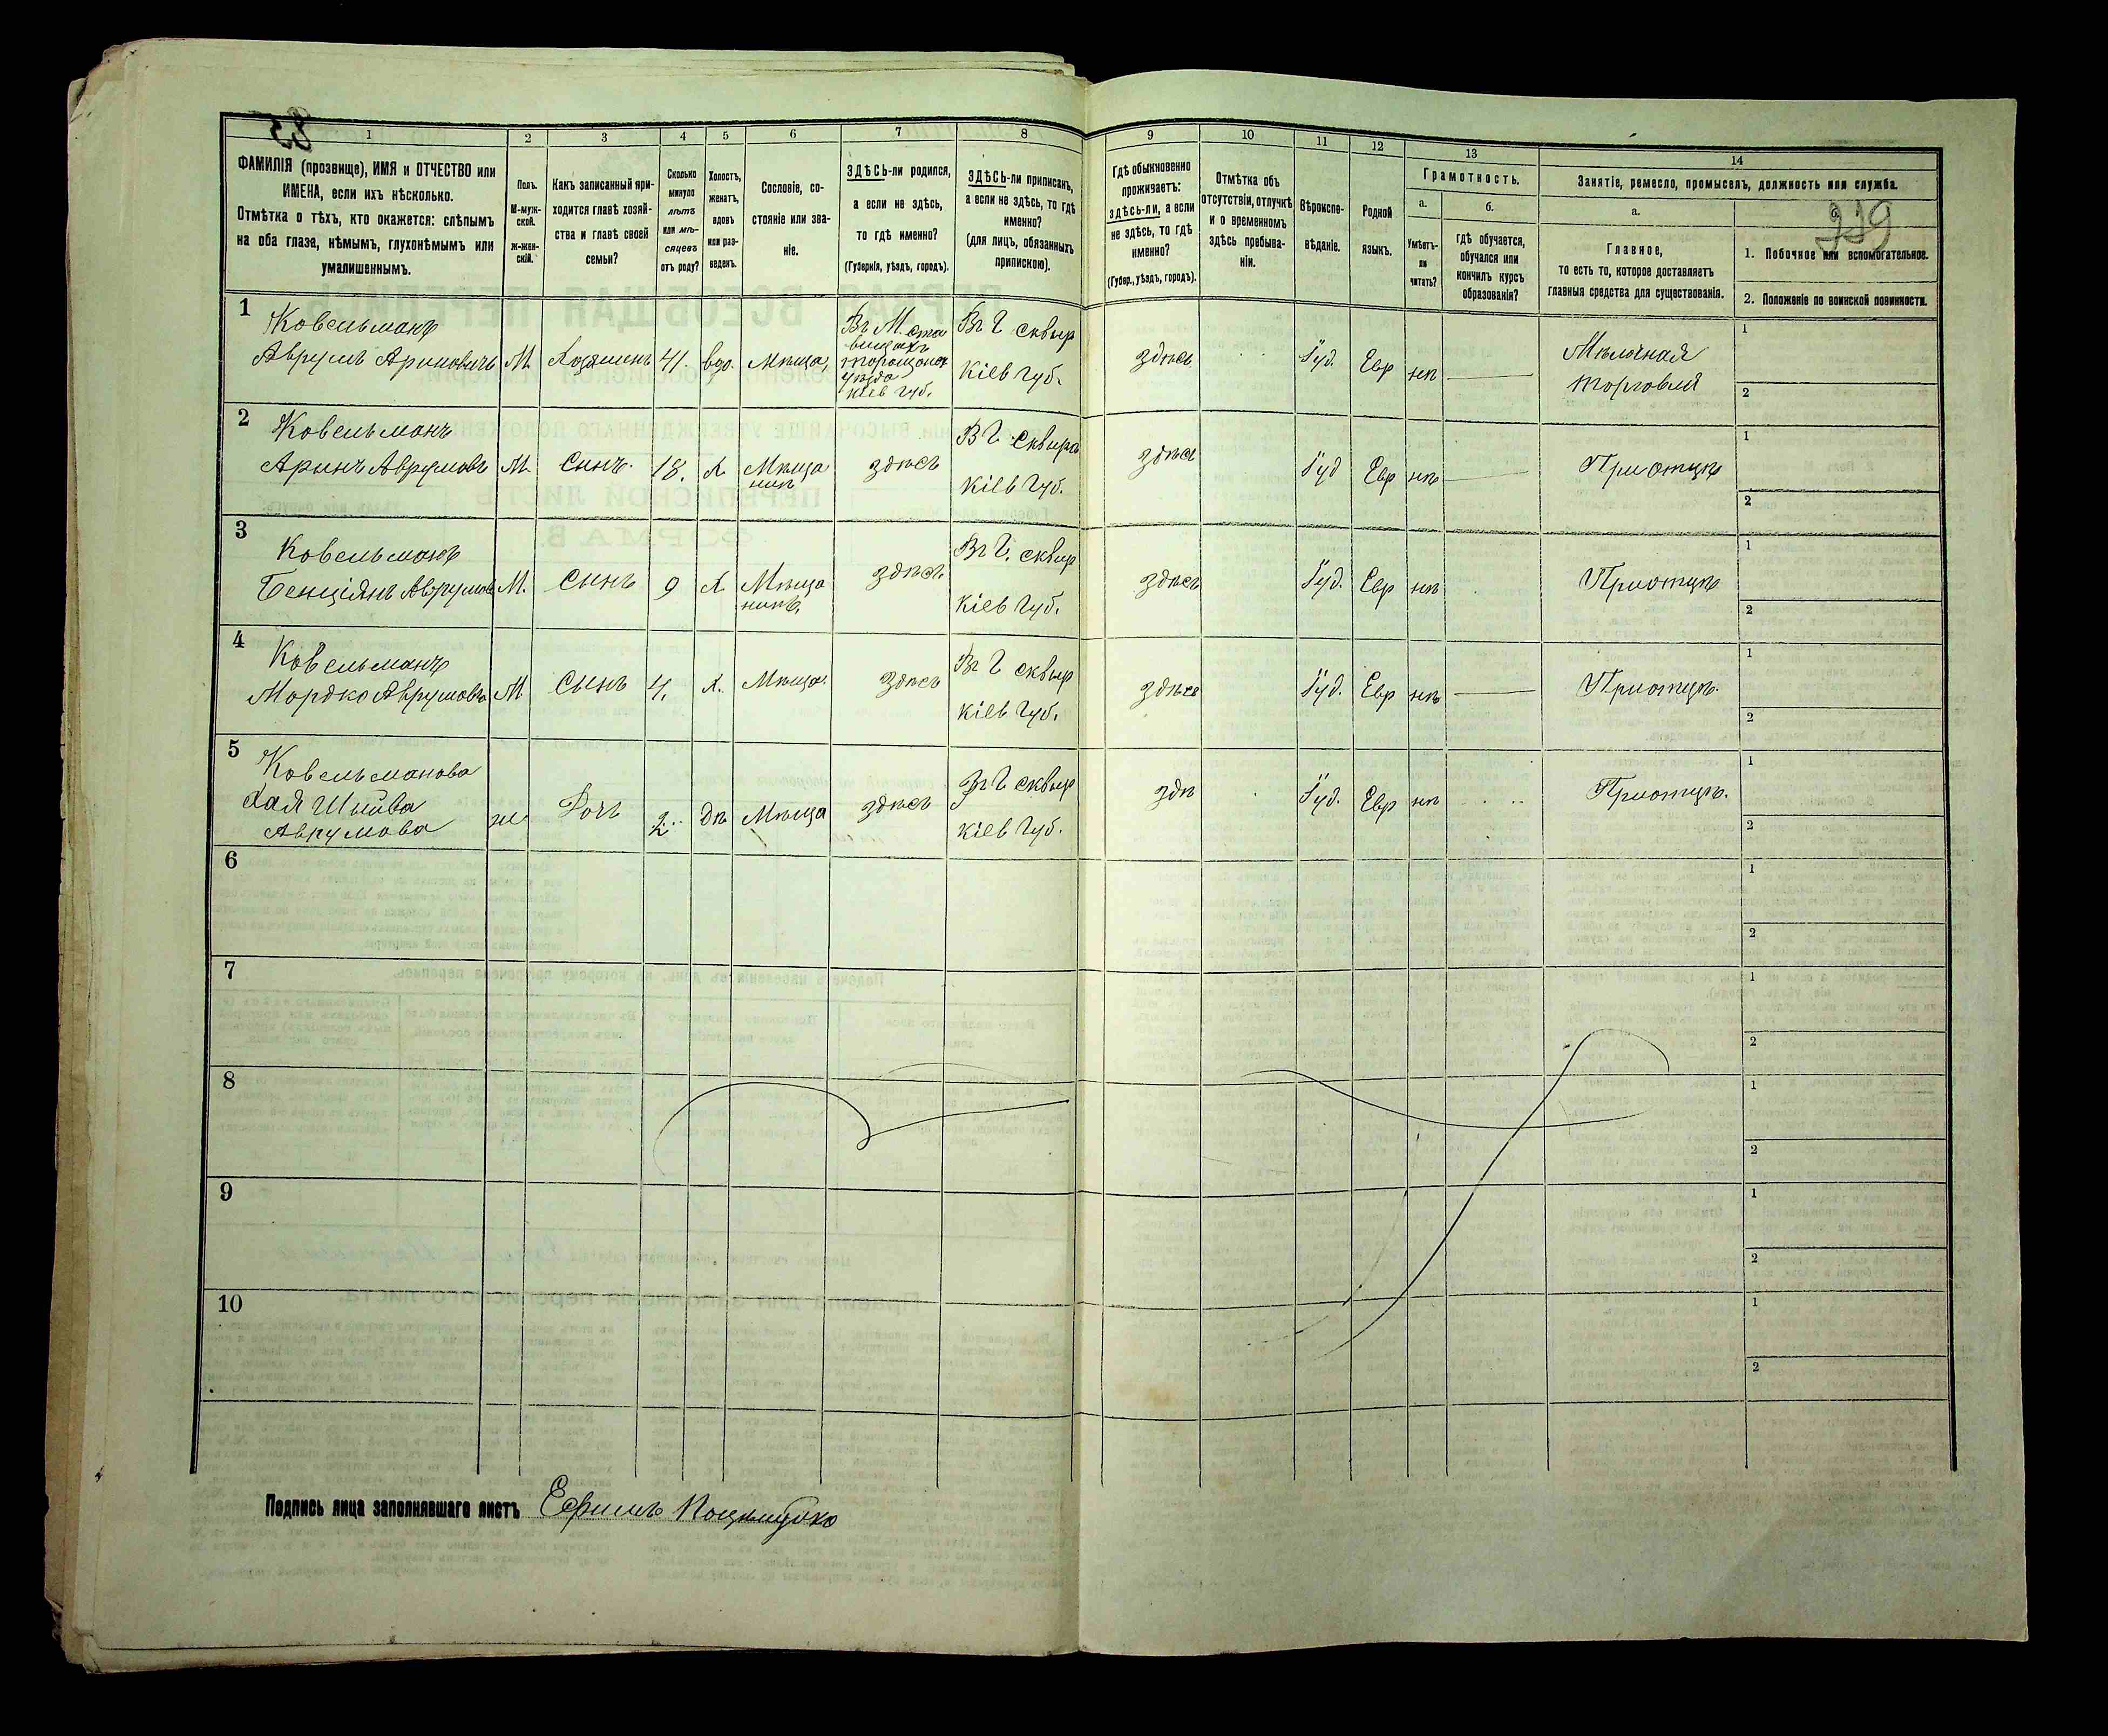 229
1
2
3
4
5
6
7
8
9
10
11
12
13
14
ФАМИЛІЯ (прозвище), ИМЯ и ОТЧЕСТВО или
ИМЕНА, если ихъ нѣсколько.
Отмѣтка о тѣхъ, кто окажется: слѣпымъ
на оба глаза, нѣмымъ, глухонѣмымъ или
умалишеннымъ.
Полъ.
М-муж-
ской.
ж-жен-
скій.
Какъ записанный при-
ходится главѣ хозяй-
ства и главѣ своей
семьи?
Сколько
минуло
лѣтъ
или мѣ-
сяцевъ
отъ роду?
Холостъ,
женатъ,
вдовъ
или раз-
веденъ.
Сословіе, со-
стояніе или зва-
ніе.
ЗДѢСЬ-ли родился,
а если не здѣсь,
то гдѣ именно?
(Губернія, уѣздъ, городъ).
ЗДѢСЬ-ли приписанъ,
а если не здѣсь, то гдѣ
именно?
(для лицъ, обязанныхъ
припискою).
Гдѣ обыкновенно
проживаетъ:
здѣсь-ли, а если
не здѣсь, то гдѣ
именно?
(Губер., уѣздъ, городъ).
Отмѣтка объ
отсутствіи, отлучкѣ
и о временномъ
здѣсь пребыва-
ніи.
Вѣроиспо-
вѣданіе.
Родной
языкъ.
Грамотность.
а.
Умѣетъ-
ли
читать?
б.
гдѣ обучается,
обучался или
кончилъ курсъ
образованія?
Занятіе, ремесло, промыселъ, должность или служба.
а.
Главное,
то есть то, которое доставляетъ
главныя средства для существованія.
б.
1. Побочное или вспомогательное.
2. Положеніе по воинской повинности.
1
Ковельманъ
Аврумъ Ароновичъ
М.
Хозяинъ
41.
вдо.
Мѣща,
Въ М. Ста
вищахъ
Таращанск
уѣзда
Кіев губ.
Въ Г Сквир
Кіев губ.
здѣсь
Іуд.
Евр
нѣ
Мѣлочная
торговля
1
2
2
Ковельманъ
Аронъ Аврумовъ
М.
Сынъ.
18.
Х
Мѣща
нинъ
здѣсь
В Г Сквира
Кіев Губ.
здѣсь
Іуд
Евр
нѣ
При отцѣ
1
2
3
Ковельманъ
Бенціянъ Аврумов
М.
Сынъ
9
Х
Мѣща
нинъ,
здѣсь
Въ Г. Сквир
Кіев Губ.
здѣсь
Іуд.
Евр
нѣ
При отцѣ
1
2
4
Ковельманъ
Мордко Аврумовъ
М
Сынъ
4.
Х.
Мѣща
здѣсь
Въ Г Сквир
Кіев Губ.
здѣсь
Іуд.
Евр
нѣ
При отцѣ.
1
2
5
Ковельманова
Хая
Аврумова
ж
Дочь
2
дѣ
Мѣща
здѣсь
Въ Г Сквир
Кіев Губ.
здѣ
Іуд.
Евр
нѣ
При отцѣ.
1
2
6
1
2
7
1
2
8
1
2
9
1
2
10
1
2
Подпись лица заполнявшаго листъ Ефимъ